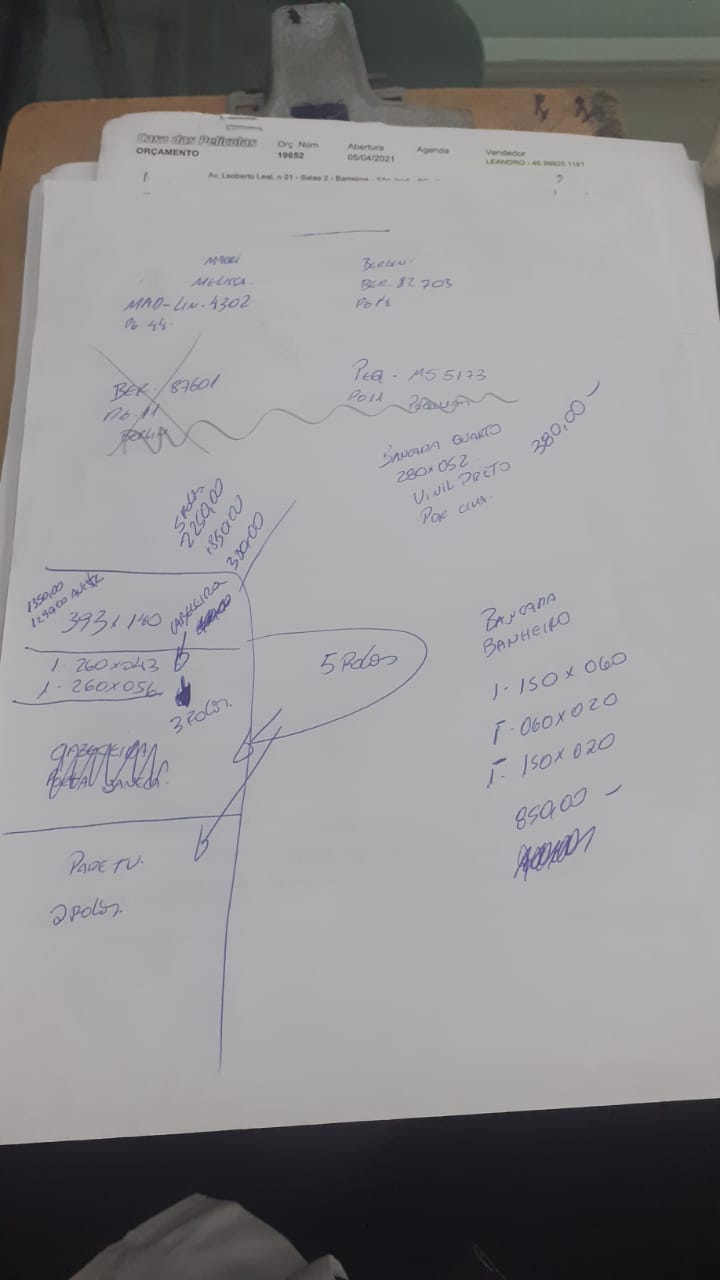 Casa das Películas
ORÇAMENTO
Orç. Núm
19652
Abertura
05/04/2021
Agenda
Vendedor
LEANDRO - 48 99925 1181
Av. Leoberto Leal, n 01 - Salas 2 - Barreiros
MELISSA.
MAD-LIN-4302
PG 44.
BERLIN.
BER. 82 703
BER. 87601
PG. 11
BERLIM
PEQ - MS 5173
BANCADA QUARTO
280x052
VINIL PRETO
POR CIMA.
380,00
5 ROLOS
2250,00
+850,00
380,00
1350,00
393 x 140
CABECEIRA
1- 260x043
1- 260x056
3 ROLOS.
5 ROLOS
PAREDE TV.
2 ROLOS.
BANCADA
BANHEIRO
1- 150 x 060
1- 060x020
1- 150x020
850,00